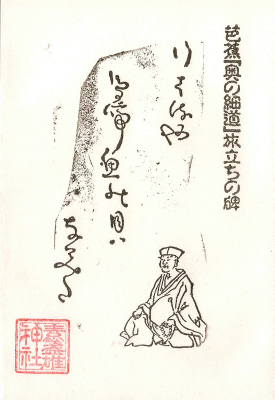 芭蕉『奥の細道』旅立ちの碑
行はるや
鳥啼魚の目ハ
なみだ
素盞雄
神社